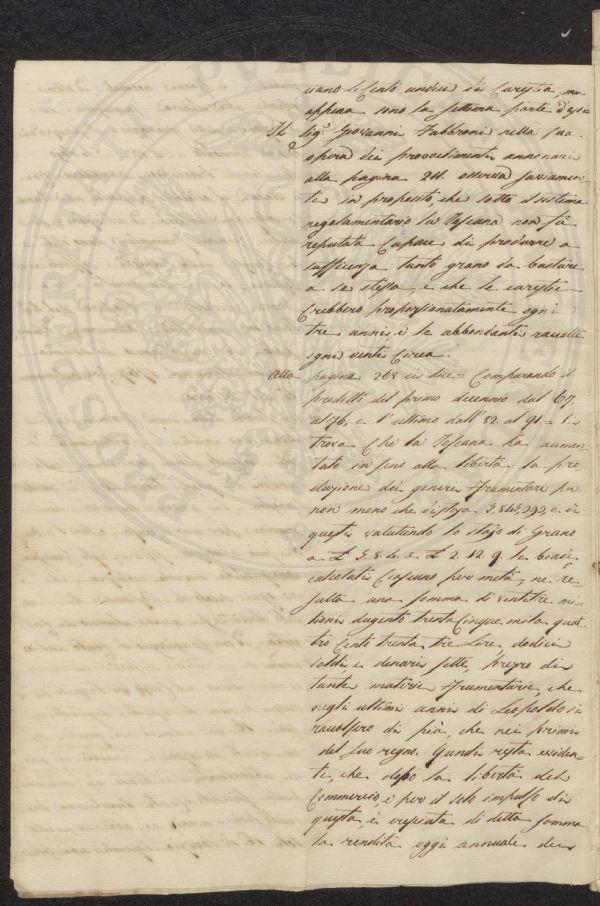 cento undici di Carestia, ma
appena sono la settima parte d'essi
Il Sig.r Giovanni Fabbroni nella sua
opera dei provvedimenti annonari
alla pagina 211. osserva saviamen=
te in proposito, che sotto il sistema
regolamentario la Toscana non fù
reputata Capace di produrre a
sufficenza tanto grano da bastare
a se stessa, e che le carestie
Crebbero proporzionatamente ogni
tre anni, e le abbondanti raccolte
ogni venti Circa.
alla pagina 268 ci dice = Comparando i
prodotti del primo decennio dal 67
al 76, e l'ultimo dall'82 al 91 = si
trova Che la Toscana ha aumen
tato in seno alla libertà la pro=
duzione dei generi frumentari per
non meno che di staja e di
questi valutando lo stajo di Grano
a £ e £ 2. 12. 9 le biade
calcolati Ciascuno per metà, ne re
sulta una somma di ventitre mi=
lioni dugento trenta Cinque mila quat
tro Cento trenta tre Lire, dodici
soldi, e denari sette, prezzo di
tante materie frumentarie, che
negli ultimi anni di Leopoldo si
raccolsero di più, che nei primi
del suo regno. Quindi resta eviden=
te, che dopo la libertà del
Commercio, e per il solo impulso di
questa, è cresciuta di detta somma
la rendita oggi annuale dei